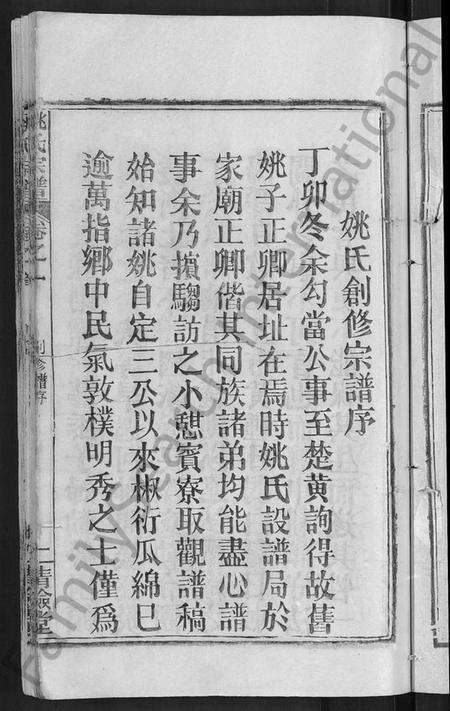 姚氏創修宗譜序
丁卯冬余勾當公事至楚黄詢得故舊
姚子正卿居址在焉時姚氏設譜局於
家廟正卿偕其同族諸弟均能盡心譜
事余乃擯騶訪之小憩賓寮取觀譜稿
始知諸姚自定三公以來椒衍瓜綿已
逾萬指鄉中民氣敦樸明秀之士僅爲
姚氏宗譜 卷之一
創修譜序
FamilySearch International